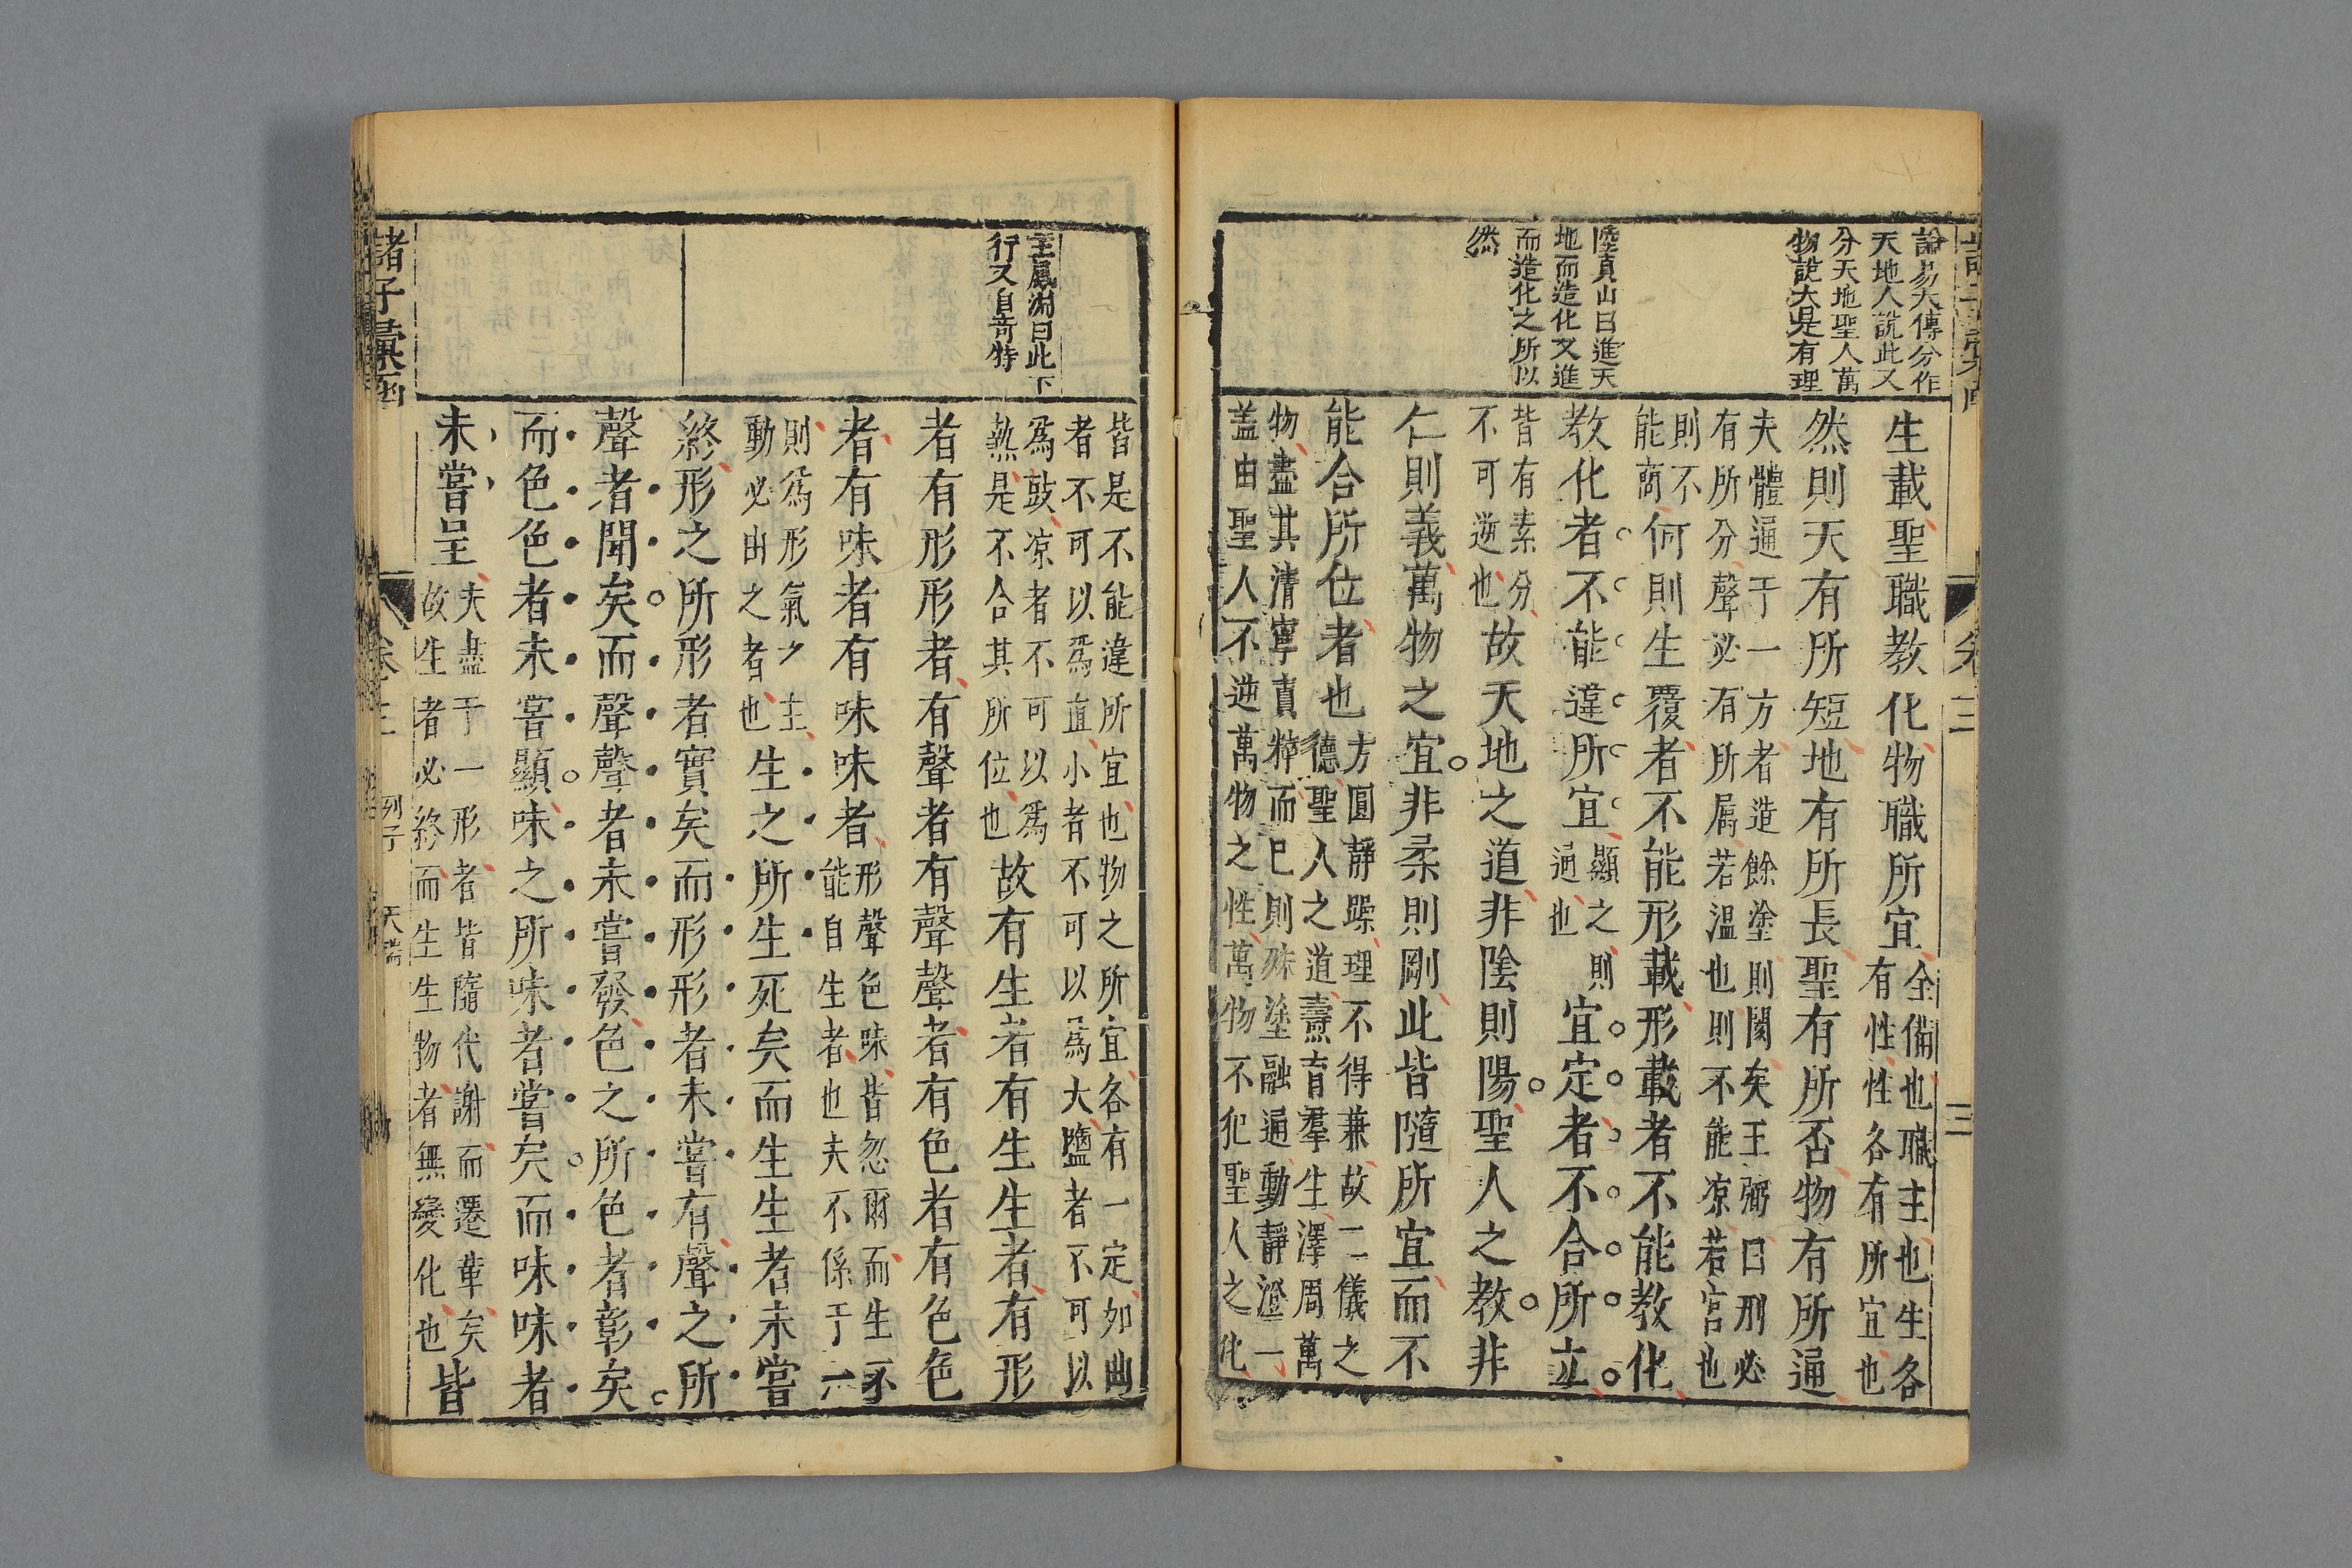 論易大傳分作
天地人說此又
分天地聖人萬
物說大是有理
陸真山曰進天
地而造化又進
而造化之所以
然
生載聖職教化物職所宜全備也職主也生各有性性各有所宜也
然則天有所短地有所長聖有所否物有所通
夫體適于一方者造餘塗則閡矣王弼曰刑必有所分聲必有所屬若溫也則不能凉若宮也
則不能商何則生覆者不能形載形載者不能教化
教化者不能違所宜顯之則通也宜定者不合所立
皆有素分不可逆也故天地之道非陰則陽聖人之教非
仁則義萬物之宜非柔則剛此皆隨所宜而不
能合所位者也方圓靜躁理不得兼故二儀之德聖人之道燾育羣生澤周萬
物盡其清寧貞粹而已則殊塗融通動靜澄一
蓋由聖人不逆萬物之性萬物不犯聖人之化
王鳳洲曰此下
行文自奇特
皆是不能違所宜也物之所宜各有一定如曲
者不可以爲直小者不可以爲大鹽者不可以
爲豉凉者不可以爲
熱是不合其所位也故有生者有生生者有形
者有形形者有聲者有聲聲者有色者有色色
者有味者有味味者形聲色味皆忽爾而生不能自生者也夫不係于一
則爲形氣之主動必由之者也生之所生死矣而生生者未嘗
終形之所形者實矣而形形者未嘗有聲之所
聲者聞矣而聲聲者未嘗發色之所色者彰矣
而色色者未嘗顯味之所味者嘗矣而味味者
未嘗呈夫盡于一形者皆隨代謝而遷革矣故生者必終而生生物者無變化也皆
諸子彙函
卷三
列子
天瑞